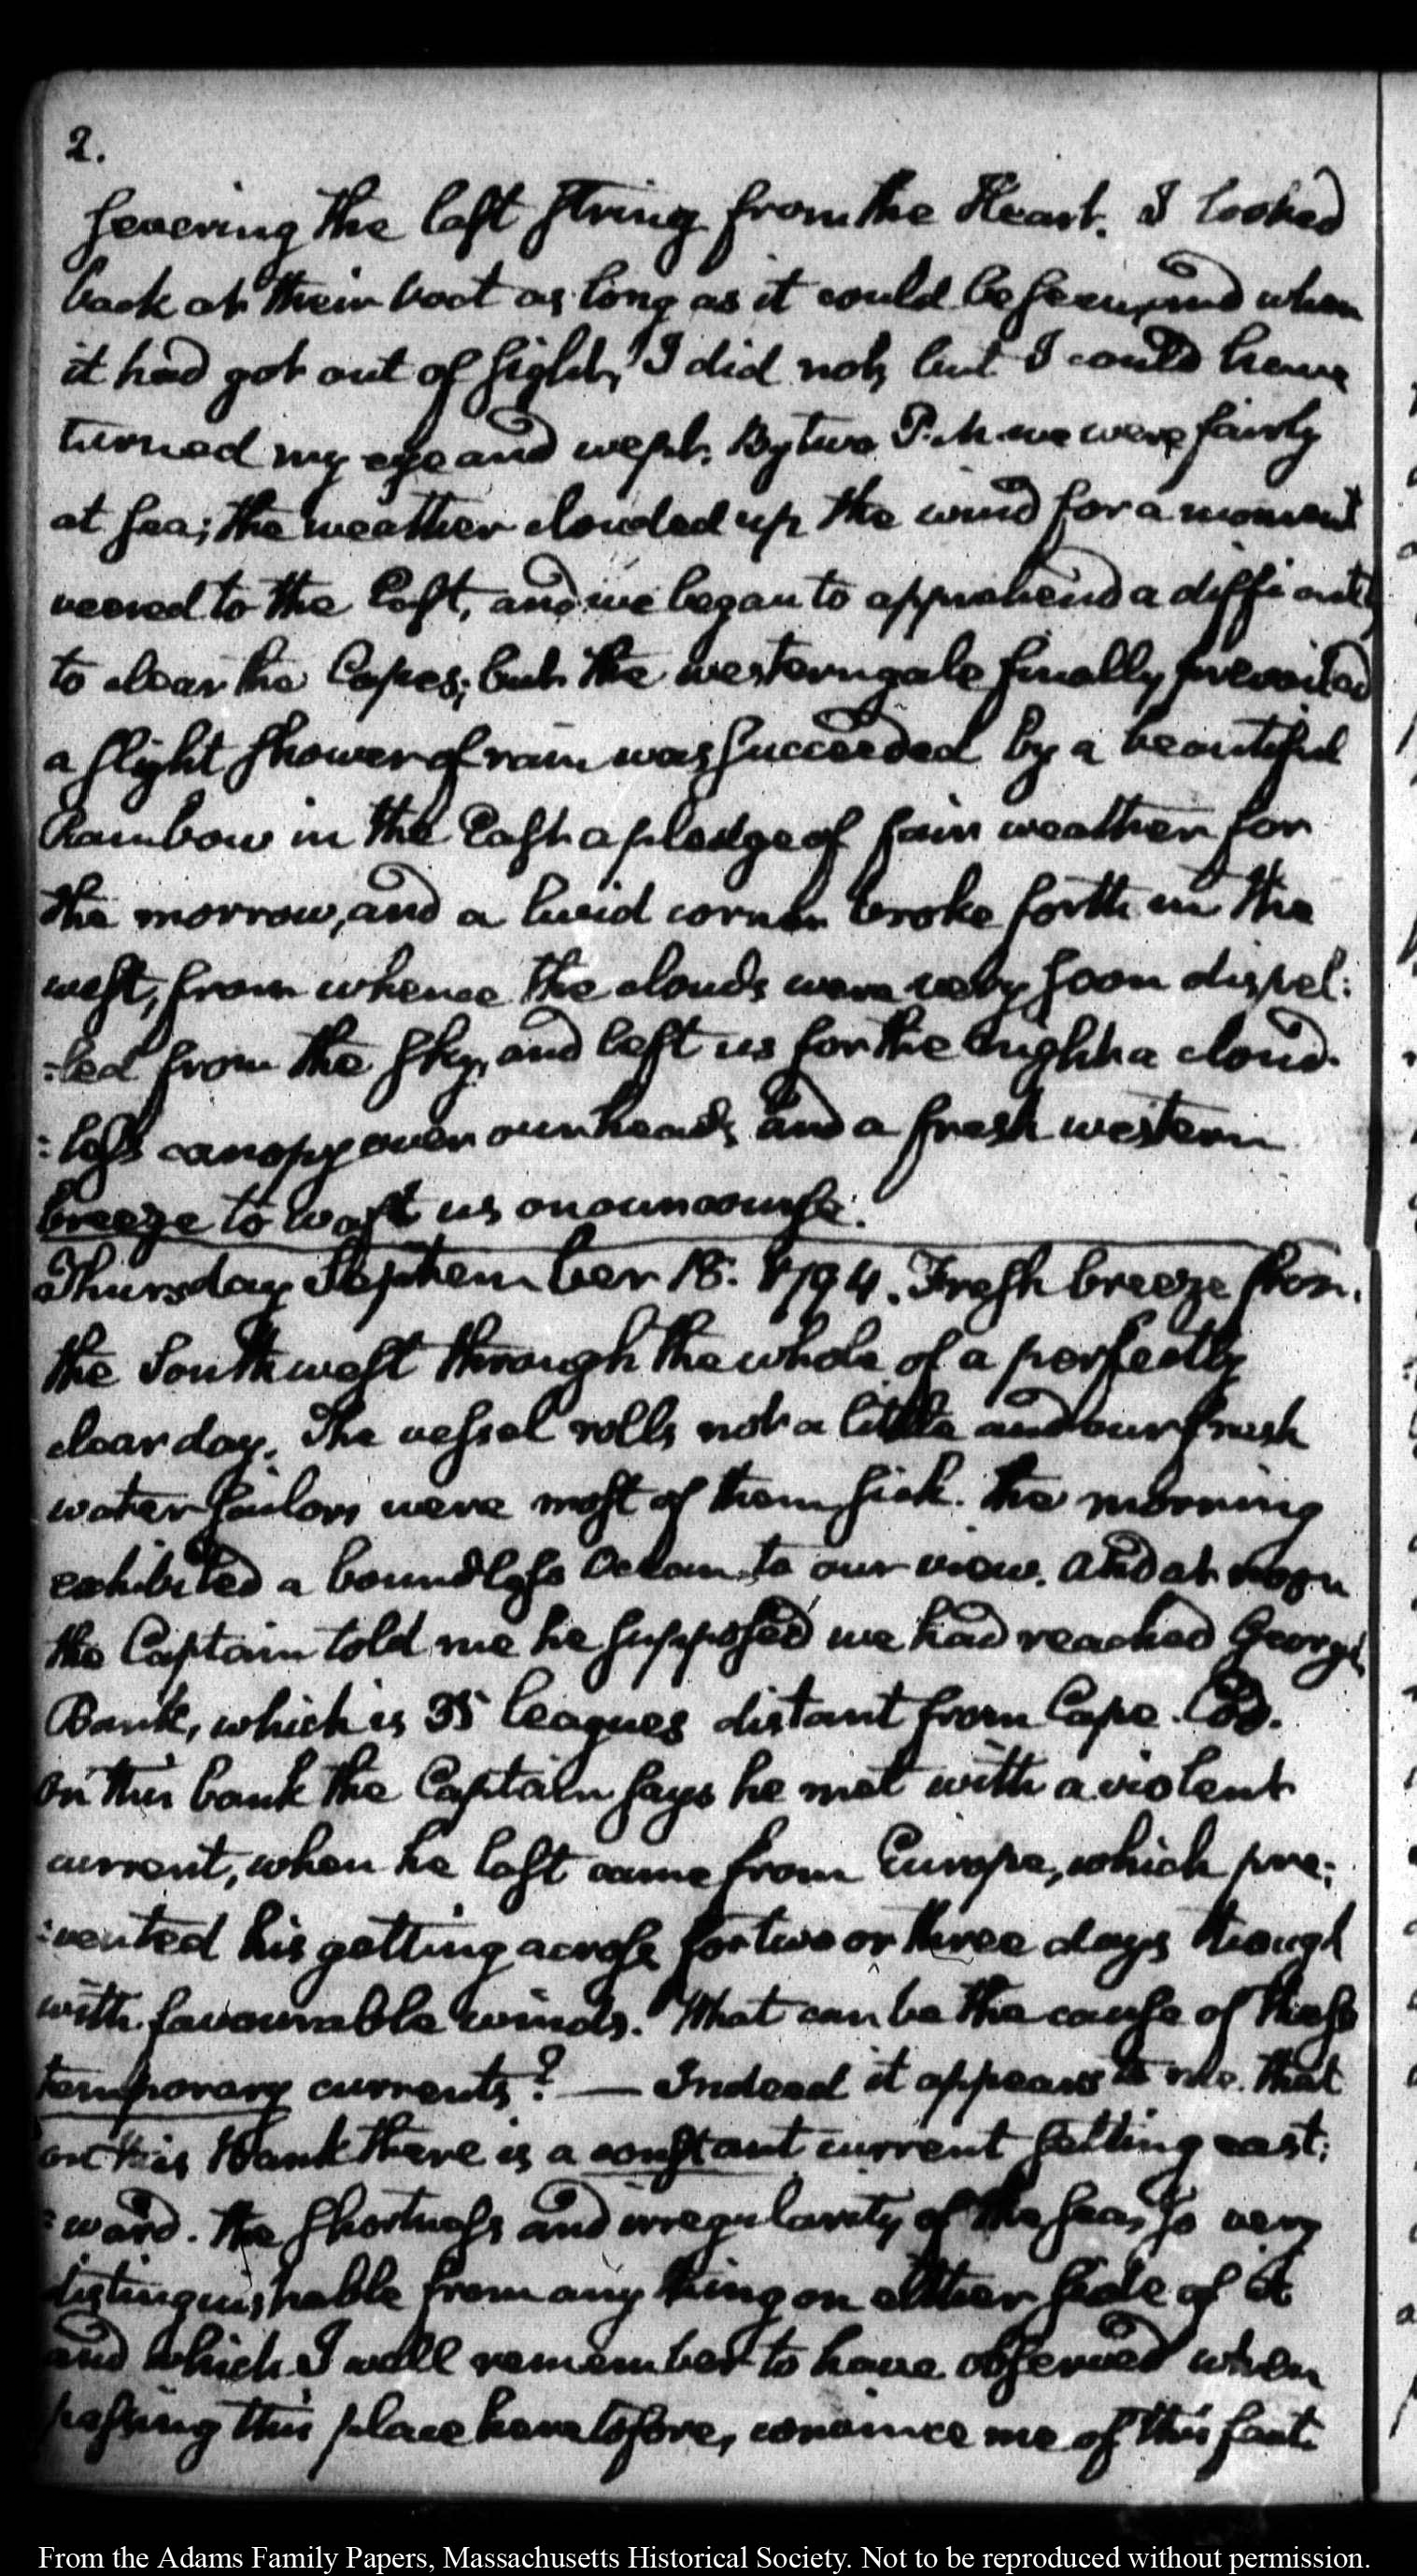 2.
severing the last string from the Heart. I looked
back at their boat as long as it could be seen, and when
it had got out of sight, I did not, but I could have
turned my eye and wept. By two P.M we were fairly
at sea; the weather clouded up the wind for a moment
veered to the East, and we began to apprehend a difficulty
to clear the Capes; but the western gale finally prevailed
a slight shower of rain was succeeded by a beautiful
Rainbow in the East a pledge of fair weather for
the morrow, and a lucid corner broke forth in the
west, from whence the clouds were very soon dispel:
:led from the sky, and left us for the night a cloud
:less canopy over our heads and a fresh western
breeze to waft us on our course.
Thursday September 18. 1794. Fresh breeze from
the Southwest through the whole of a perfectly
clear day. The vessel rolls not a little and our fresh
water sailors were most of them sick. The morning
exhibited a boundless Ocean to our view. And at noon
the Captain told me he supposed we had reached Georges
Bank, which is 35 leagues distant from Cape Cod.
On this bank the Captain says he met with a violent
current, when he last came from Europe, which pre:
:vented his getting across for two or three days though
with favourable winds. What can be the cause of these
temporary currents? — Indeed it appears to me that
on this Bank there is a constant current setting east:
:ward. The shortness and irregularity of the seas, so very
distinguishable from any thing on either side of it
and which I well remember to have observed when
passing this place heretofore, convince me of this fact.
From the Adams Family Papers, Massachusetts Historical Society. Not to be reproduced without permission.